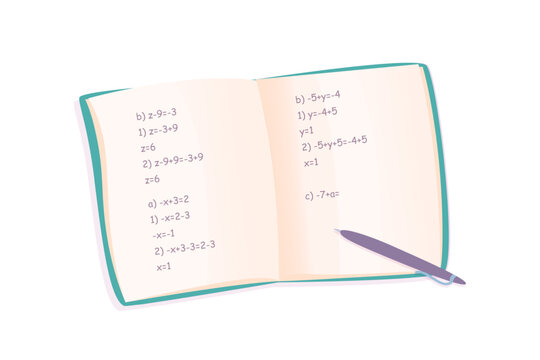 b) z-9=-3
1) z=-3+9
z=6
2) z-9+9=-3+9
z=6
a) -x+3=2
1) -x=2-3
-x=-1
2) -x+3-3=2-3
x=1
b) -5+y=-4
1) y=-4+5
y=1
2) -5+y+5=-4+5
x=1
c) -7+a=